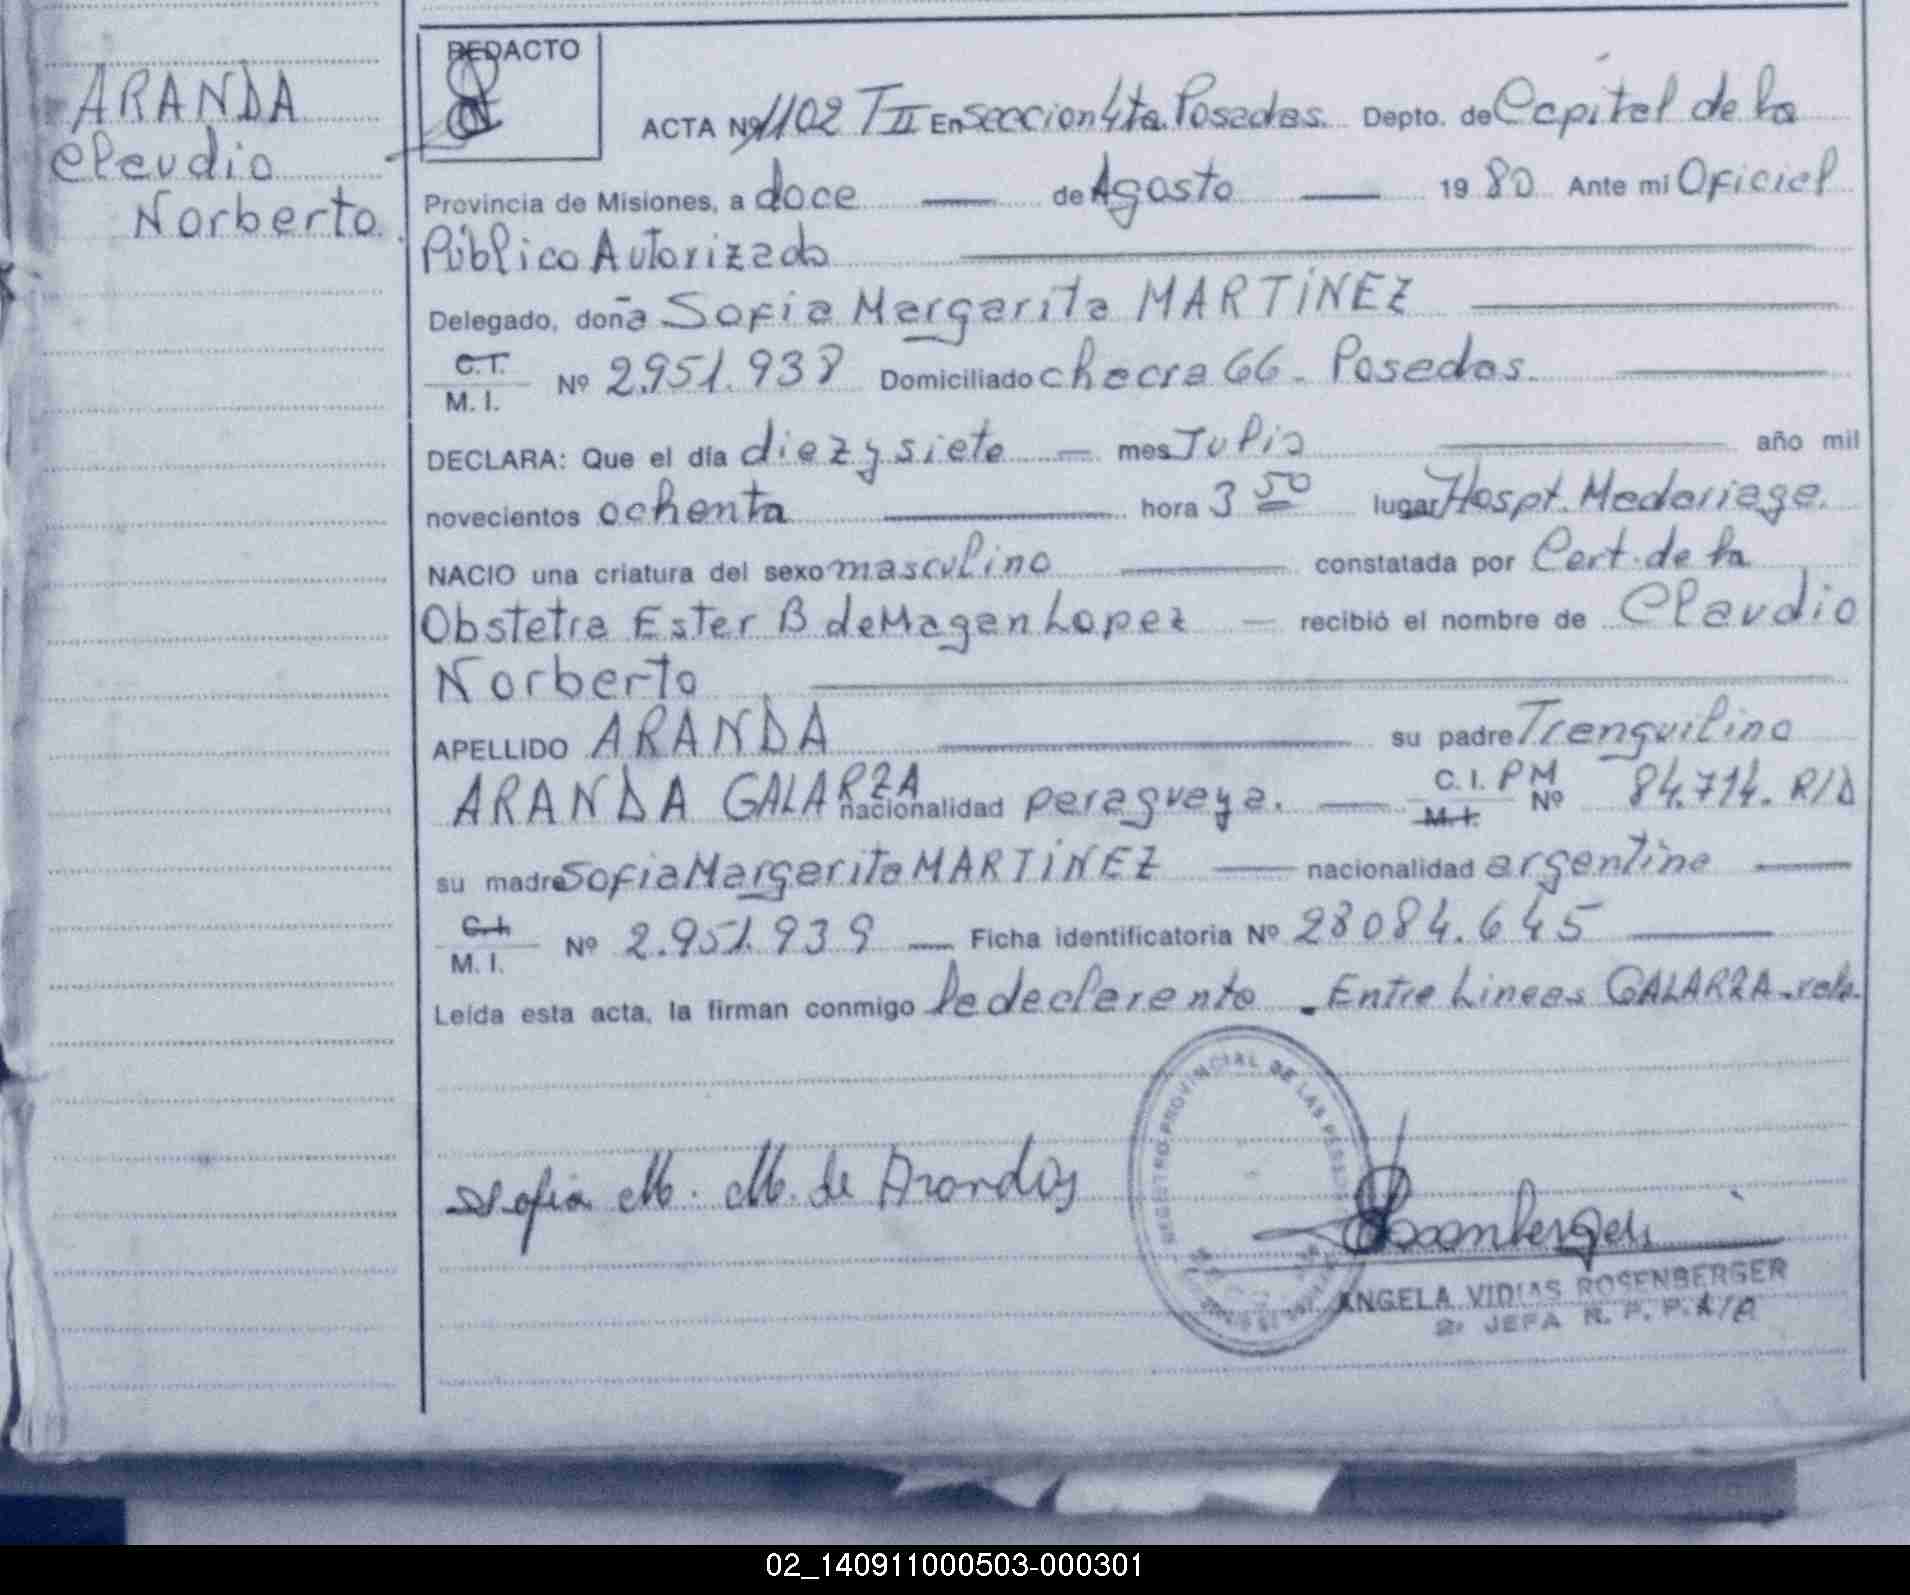 ARANDA
Claudio
Norberto
REDACTO
ACTA Nº 1102 T II En seccion 4ta. Posadas. Depto. de Capital de la
Provincia de Misiones, a doce — de Agosto — 1980 Ante mi Oficial
Público Autorizado
Delegado, doña Sofia Margarita MARTÍNEZ
C.T.
M. I. Nº 2.951.938 Domiciliado chacra 66 - Posadas.
DECLARA: Que el día diez y siete — mes Julio — año mil
novecientos ochenta — hora 3 50 lugar Hospt. Madariaga.
NACIO una criatura del sexo masculino — constatada por Cert. de la
Obstetra Ester B de Magan Lopez — recibió el nombre de Claudio
Norberto
APELLIDO ARANDA — su padre Tranquilino
ARANDA GALARZA nacionalidad paraguaya. — C. I. PM
M. I. Nº 84.714. R/D
su madre Sofia Margarita MARTÍNEZ — nacionalidad argentina —
C. I.
M. I. Nº 2.951.939 — Ficha identificatoria Nº 28084.645 —
Leída esta acta, la firman conmigo la declarente. Entre Lineas GALARZA - vale.
Sofia M. M. de Aranda
REGISTRO PROVINCIAL DE LAS PERSONAS
Rosenberger
ANGELA VIDIAS ROSENBERGER
2ª JEFA R. P. P. A/A
02_140911000503-000301